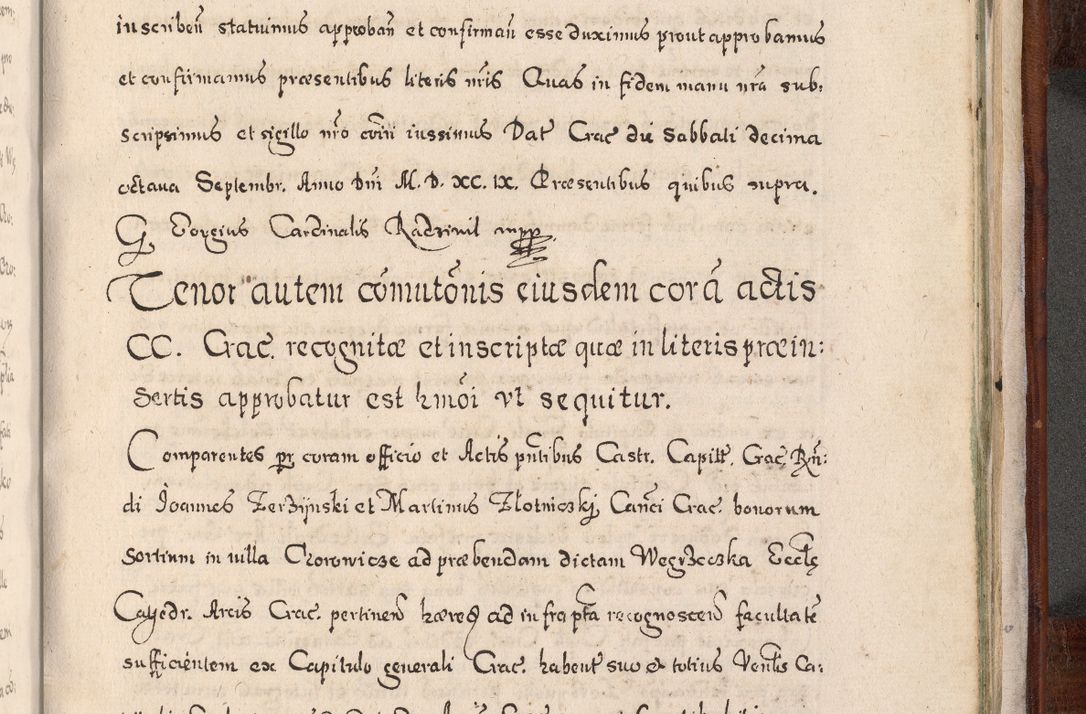 inscribeñ statuimus approbañ et confirmañ esse duximus prout approbamus
et confirmamus præsentibus literis nr̃is Quas in fidem manu nrã sub:
scripsimus et sigillo nrõ com̃i iussimus Dat̃ Crac̃ die Sabbati decima
octaua Septembr. Anno Dñi M. D. XC. IX. Præsentibus quibus supra.
Georgius Cardinalis Radziwil mpp
Tenor autem com̃utõnis eiusdem corã actis
CC. Crac̃. recognitæ et inscriptæ quæ in literis præin:
sertis approbatur est hm̃oi vt sequitur.
Comparentes pr̃ coram officio et Actis pñtibus Castr. Capitł. Crac̃ Rñ:
di Joannes Zerzijnski et Martinus Złotniczkj, Cañci Crac̃. bonorum
Sortium in villa Chorowicze ad præbendam dictam Węgrzeczka Eccłę
Cathedr. Arcis Crac̃. pertineñ hæredẽs ad infrapt̃a recognosceñ facultatẽ
sufficientem ex Capitulo generali Crac̃. habent̃ suo et totius Venłis Ca: